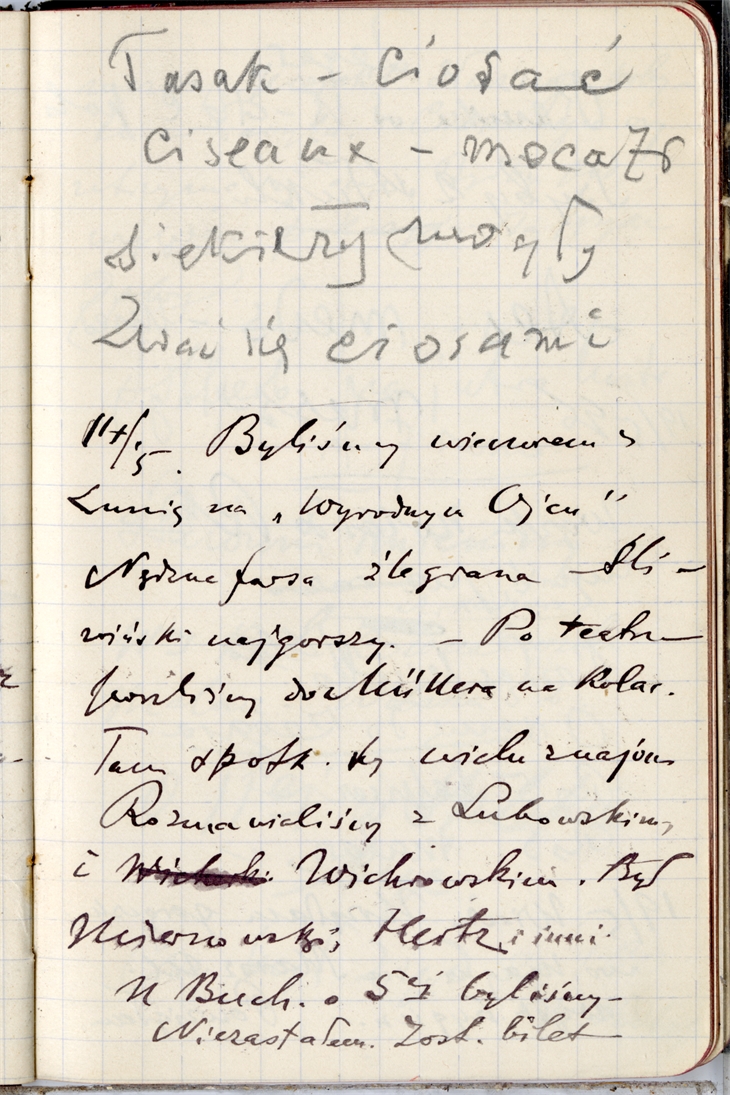 Tasak – Ciosać
Ciseaux –
siekierzy
się ciosami
14/5. Byliśmy wieczorem z
Lunią na „Wyrodnym Ojcu”
Nędzna farsa źle grana – Śli-
wiński najgorszy. – Po teatrze
poszliśmy do Müllera na Kolac.
Tam spotk. wielu znajom
Rozmawialiśmy z Lubowskim,
i Wichrowskim. Był
Hertz, i inni.
U Buch. o 5ej byliśmy –
Niezastałem. Zost. bilet